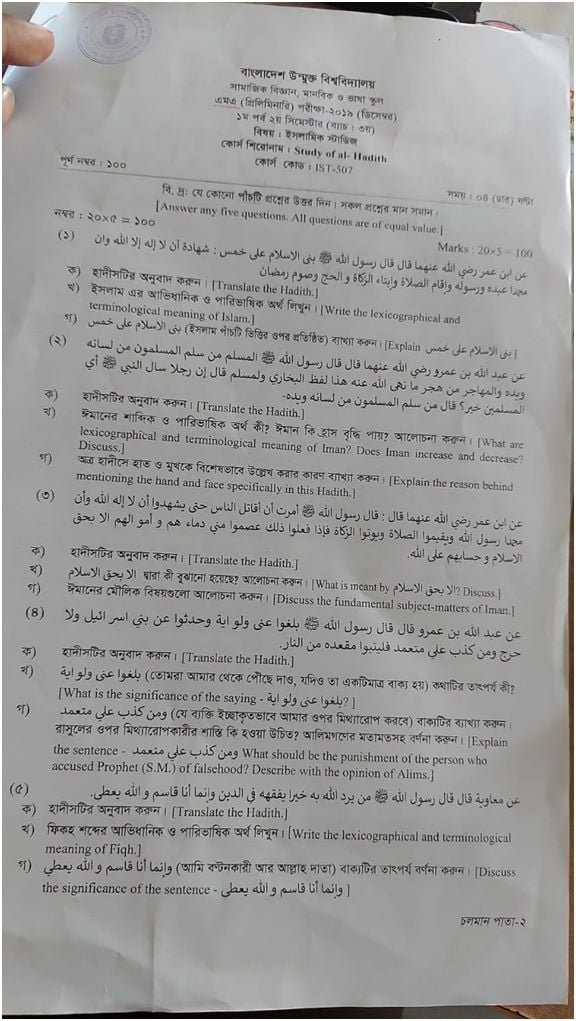 বাংলাদেশ উন্মুক্ত বিশ্ববিদ্যালয়
সামাজিক বিজ্ঞান, মানবিক ও ভাষা স্কুল
এমএ (প্রিলিমিনারি) পরীক্ষা-২০১৯ (ডিসেম্বর)
১ম পর্ব ২য় সিমেস্টার (ব্যাচ : ৩য়)
বিষয় : ইসলামিক স্টাডিজ
কোর্স শিরোনাম : Study of al- Hadith
কোর্স কোড : IST-507
পূর্ণ নম্বর : ১০০
সময় : ০৪ (চার) ঘণ্টা
বি. দ্র: যে কোনো পাঁচটি প্রশ্নের উত্তর দিন। সকল প্রশ্নের মান সমান।
[Answer any five questions. All questions are of equal value.]
নম্বর : ২০×৫ = ১০০
Marks : 20×5 = 100
(১) عن ابن عمر رضي الله عنهما قال قال رسول الله ﷺ بنى الاسلام على خمس : شهادة أن لا إله إلا الله وان
محمدا عبده ورسوله وإقام الصلاة وإيتاء الزكاة و الحج وصوم رمضان
ক) হাদীসটির অনুবাদ করুন। [Translate the Hadith.]
খ) ইসলাম এর আভিধানিক ও পারিভাষিক অর্থ লিখুন। [Write the lexicographical and
terminological meaning of Islam.]
গ) بنى الاسلام على خمس (ইসলাম পাঁচটি ভিত্তির ওপর প্রতিষ্ঠিত) ব্যাখ্যা করুন। [Explain بنى الاسلام على خمس ]
(২) عن عبد الله بن عمرو رضي الله عنهما قال قال رسول الله ﷺ المسلم من سلم المسلمون من لسانه
ويده والمهاجر من هجر ما نهى الله عنه هذا لفظ البخاري ولمسلم قال إن رجلا سال النبي ﷺ أي
المسلمين خير؟ قال من سلم المسلمون من لسانه ويده-
ক) হাদীসটির অনুবাদ করুন। [Translate the Hadith.]
খ) ঈমানের শাব্দিক ও পারিভাষিক অর্থ কী? ঈমান কি হ্রাস বৃদ্ধি পায়? আলোচনা করুন। [What are
lexicographical and terminological meaning of Iman? Does Iman increase and decrease?
Discuss.]
গ) অত্র হাদীসে হাত ও মুখকে বিশেষভাবে উল্লেখ করার কারণ ব্যাখ্যা করুন। [Explain the reason behind
mentioning the hand and face specifically in this Hadith.]
(৩) عن ابن عمر رضي الله عنهما قال : قال رسول الله ﷺ أمرت أن أقاتل الناس حتى يشهدوا أن لا إله الله وأن
محمدا رسول الله ويقيموا الصلاة ويوتوا الزكاة فإذا فعلوا ذلك عصموا مني دماء هم و أمو الهم الا بحق
الاسلام و حسابهم على الله.
ক) হাদীসটির অনুবাদ করুন। [Translate the Hadith.]
খ) الا بحق الاسلام দ্বারা কী বুঝানো হয়েছে? আলোচনা করুন। [What is meant by الا بحق الاسلام? Discuss.]
গ) ঈমানের মৌলিক বিষয়গুলো আলোচনা করুন। [Discuss the fundamental subject-matters of Iman.]
(৪) عن عبد الله بن عمرو قال قال رسول الله ﷺ بلغوا عنى ولو اية وحدثوا عن بني اسر ائيل ولا
حرج ومن كذب علي متعمد فليتبوا مقعده من النار.
ক) হাদীসটির অনুবাদ করুন। [Translate the Hadith.]
খ) بلغوا عنى ولو اية (তোমরা আমার থেকে পৌছে দাও, যদিও তা একটিমাত্র বাক্য হয়) কথাটির তাৎপর্য কী?
[What is the significance of the saying - بلغوا عنى ولو اية? ]
গ) ومن كذب علي متعمد (যে ব্যক্তি ইচ্ছাকৃতভাবে আমার ওপর মিথ্যারোপ করবে) বাক্যটির ব্যাখ্যা করুন।
রাসুলের ওপর মিথ্যারোপকারীর শাস্তি কি হওয়া উচিত? আলিমগণের মতামতসহ বর্ণনা করুন। [Explain
the sentence - ومن كذب علي متعمد What should be the punishment of the person who
accused Prophet (S.M.) of falsehood? Describe with the opinion of Alims.]
(৫) عن معاوية قال قال رسول الله ﷺ من يرد الله به خيرا يفقهه في الدين وإنما أنا قاسم و الله يعطي.
ক) হাদীসটির অনুবাদ করুন। [Translate the Hadith.]
খ) ফিকহ শব্দের আভিধানিক ও পারিভাষিক অর্থ লিখুন। [Write the lexicographical and terminological
meaning of Fiqh.]
গ) وإنما أنا قاسم و الله يعطي (আমি বণ্টনকারী আর আল্লাহ দাতা) বাক্যটির তাৎপর্য বর্ণনা করুন। [Discuss
the significance of the sentence - وإنما أنا قاسم و الله يعطي ]
চলমান পাতা-২